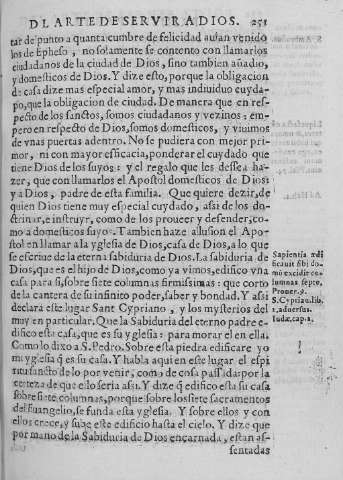 DL ARTE DE SERVIR A DIOS. 251
tar de punto a quanta cumbre de felicidad auian venido
los de Epheso, no solamente se contento con llamarlos
ciudadanos de la ciudad de Dios, sino tambien añadio,
y domesticos de Dios. Y dize esto, porque la obligacion
de casa dize mas especial amor, y mas indiuiduo cuyda-
po, que la obligacion de ciudad. De manera que en res-
pecto de los sanctos, somos ciudadanos y vezinos: em-
pero en respecto de Dios, somos domesticos, y viuimos
de vnas puertas adentro. No se pudiera con mejor pri-
mor, ni con mayor efficacia, ponderar el cuydado que
tiene Dios de los suyos: y el regalo que les dessea ha-
zer, que con llamarlos el Apostol domesticos de Dios:
y a Dios, padre de esta familia. Que quiere dezir, de
quien Dios tiene muy especial cuydado, assi de los do-
ctrinar, e instruyr, como de los proueer y defender, co-
mo a domesticos suyos. Tambien haze allusion el Apo-
stol en llamar a la yglesia de Dios, casa de Dios, a lo que
se escriue de la eterna sabiduria de Dios. La sabiduria de
Dios, que es el hijo de Dios, como ya vimos, edifico vna
casa para si, sobre siete columnas firmissimas: que corto
de la cantera de su infinito poder, saber y bondad. Y assi
declara este lugar Sant Cypriano, y los mysterios del
muy en particular. Que la Sabiduria del eterno padre e-
difico esta casa, que es su yglesia: para morar el en ella.
Como lo dixo a S. Pedro. Sobre esta piedra edificare yo
mi yglesia q̃ es su casa. Y habla aqui en este lugar el espi
ritu sancto de lo por venir, como de cosa passada: por la
certeza de que ello seria assi. Y dize q̃ edifico esta su casa
sobre siete columnas, porque sobre los siete sacramentos
del Euangelio, se funda esta yglesia. Y sobre ellos y con
ellos crece, y sube este edificio hasta el cielo. Y dize que
por mano de la Sabiduria de Dios encarnada, estan as-
sentadas
Sapientia ædi
ficauit sibi do-
mū excidit co-
lumnas septē.
Prouer. 9.
S. Cyprian. lib.
2. aduersus.
Iudæ. cap. 2.